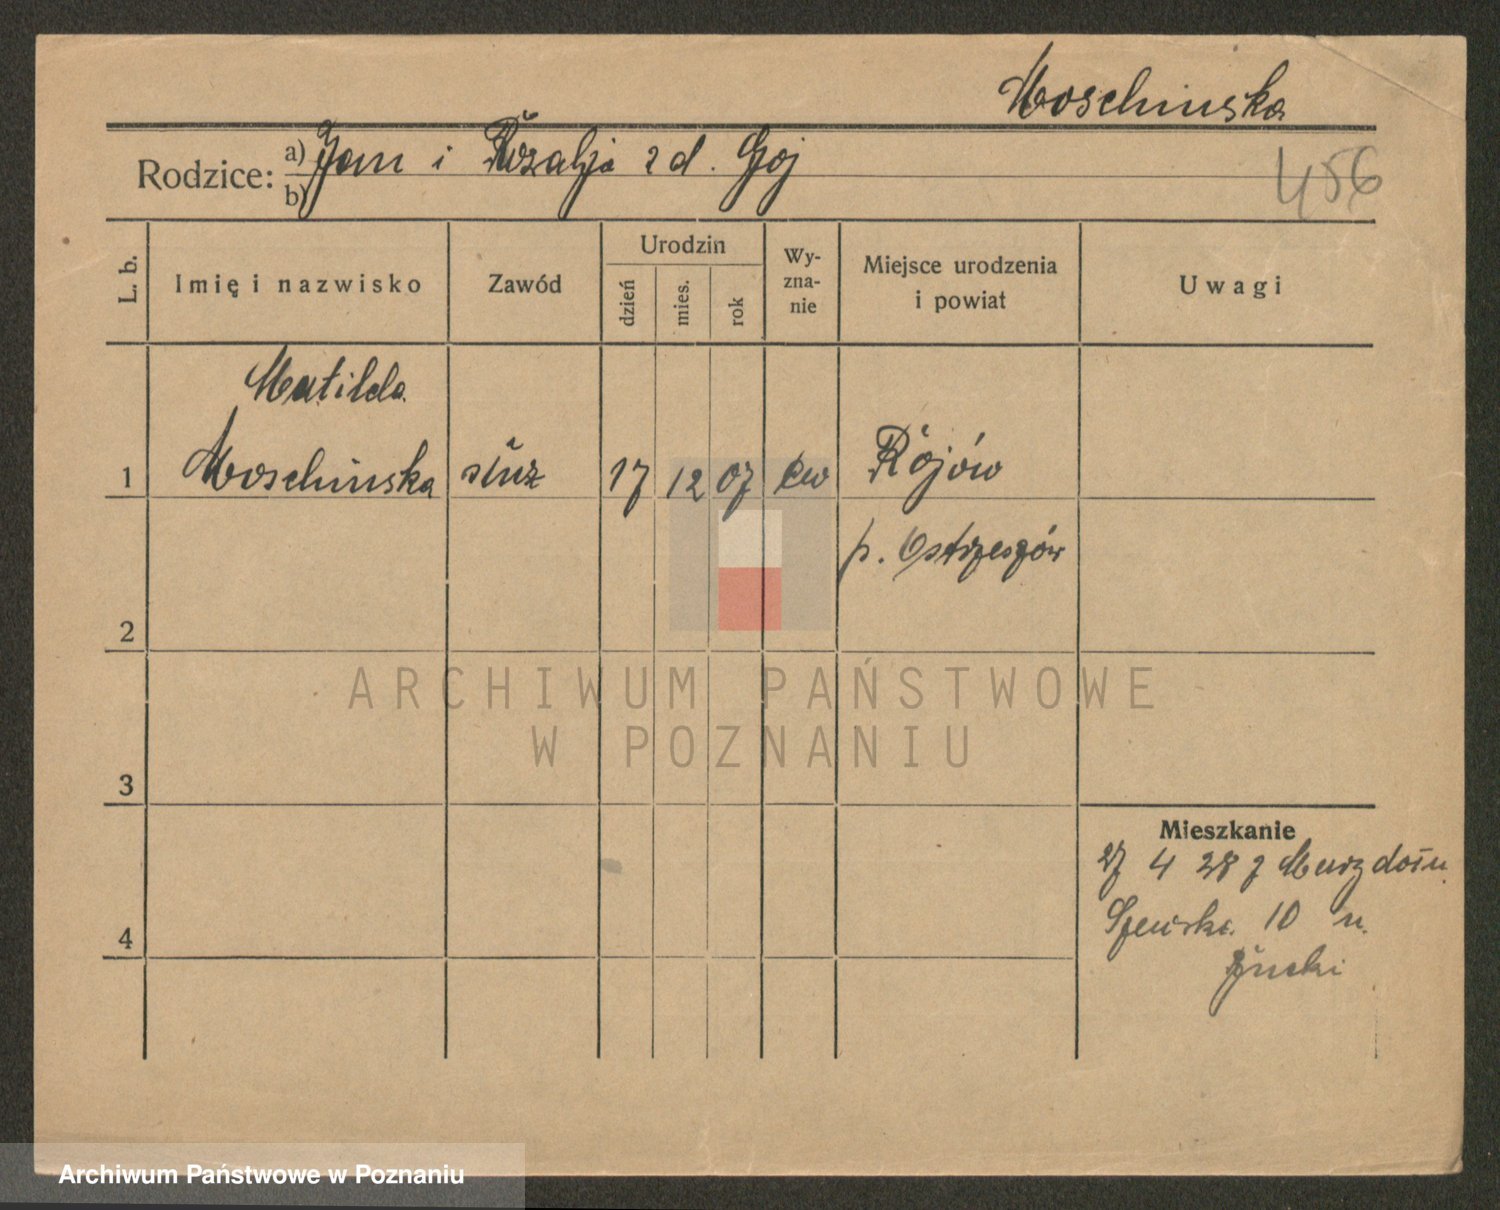 Moschinska
Rodzice: a) Jan i Rozalja z d. Goj
b)
456
L. b.
Imię i nazwisko
Zawód
Urodzin
dzień
mies.
rok
Wy-
zna-
nie
Miejsce urodzenia
i powiat
Uwagi
Matilda
1 Moschinska służ 17 12 07 ew Rojów
p. Ostrzeszów
2
3
4
Mieszkanie
27 4 28 z
10
ARCHIWUM PAŃSTWOWE
W POZNANIU
Archiwum Państwowe w Poznaniu